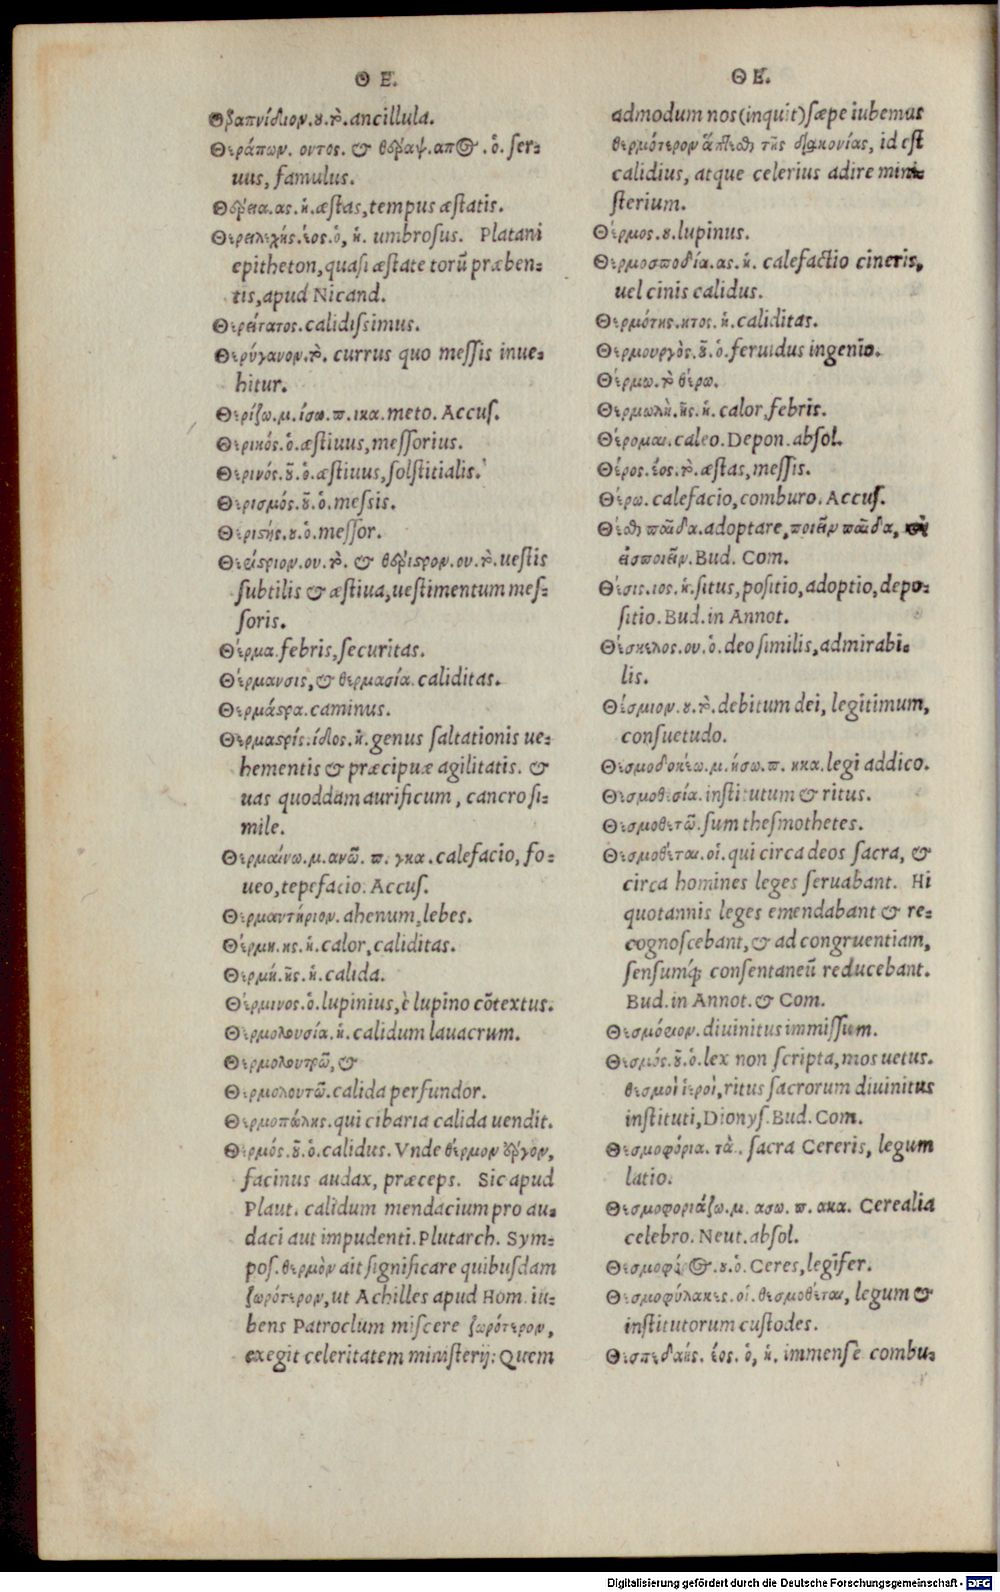 Θ Ε.
Θεραπνίδιον.ου.τὸ. ancillula.
Θεράπων. οντος. & θέραψ.απος. ὁ. ser-
uus, famulus.
Θέρεια.ας.ἡ. æstas, tempus æstatis.
Θερειλεχής.έος.ὁ, ἡ. umbrosus. Platani
epitheton, quasi æstate torũ præben-
tis, apud Nicand.
Θερείτατος. calidissimus.
Θερήγανον.τὸ. currus quo messis inue-
hitur.
Θερίζω.μ.ίσω.π.ικα. meto. Accus.
Θερικός.ὁ. æstiuus, messorius.
Θερινός.οῦ.ὁ. æstiuus, solstitialis.
Θερισμός.οῦ.ὁ. messis.
Θεριστής.ου.ὁ. messor.
Θερίστριον.ου.τὸ. & θέριστρον.ου.τὸ. uestis
subtilis & æstiua, uestimentum mes-
soris.
Θέρμα. febris, securitas.
Θέρμανσις, & θερμασία. caliditas.
Θερμάστρα. caminus.
Θερμαστρίς.ίδος.ἡ. genus saltationis ue-
hementis & præcipuæ agilitatis. &
uas quoddam aurificum, cancro si-
mile.
Θερμαίνω.μ.ανῶ. π. γκα. calefacio, fo-
ueo, tepefacio. Accus.
Θερμαντήριον. ahenum, lebes.
Θέρμη.ης.ἡ. calor, caliditas.
Θερμή.ῆς.ἡ. calida.
Θέρμινος.ὁ. lupinius, è lupino cõtextus.
Θερμολουσία.ἡ. calidum lauacrum.
Θερμολουτρῶ, &
Θερμολουτῶ. calida perfundor.
Θερμοπώλης. qui cibaria calida uendit.
Θερμός.οῦ.ὁ. calidus. Vnde θέρμον ἔργον,
facinus audax, præceps. Sic apud
Plaut. calidum mendacium pro au-
daci aut impudenti. Plutarch. Sym-
pos. θερμὸν ait significare quibusdam
ζωρότερον, ut Achilles apud Hom. iu-
bens Patroclum miscere ζωρότερον,
exegit celeritatem ministerij: Quem
Θ Ε.
admodum nos (inquit) sæpe iubemus
θερμότερον ἅπτεσθαι τῆς διακονίας, id est
calidius, atque celerius adire mini-
sterium.
Θέρμος.ου. lupinus.
Θερμοσποδία.ας.ἡ. calefactio cineris,
uel cinis calidus.
Θερμότης.ητος.ἡ. caliditas.
Θερμουργὸς.οῦ.ὁ. feruidus ingenio.
Θέρμω.τὸ θέρω.
Θερμωλὴ.ῆς.ἡ. calor, febris.
Θέρομαι. caleo. Depon. absol.
Θέρος.έος.τὸ. æstas, messis.
Θέρω. calefacio, comburo. Accus.
Θέσθαι παῖδα. adoptare, ποιεῖν παῖδα, καὶ
εἰσποιεῖν. Bud. Com.
Θέσις.ιος.ἡ. situs, positio, adoptio, depo-
sitio. Bud. in Annot.
Θέσκελος.ου.ὁ. deo similis, admirabi-
lis.
Θέσμιον.ου.τὸ. debitum dei, legitimum,
consuetudo.
Θεσμοδοκέω.μ.ήσω.π. ηκα. legi addico.
Θεσμοθεσία. institutum & ritus.
Θεσμοθετῶ. sum thesmothetes.
Θεσμοθέται.οἱ. qui circa deos sacra, &
circa homines leges seruabant. Hi
quotannis leges emendabant & re-
cognoscebant, & ad congruentiam,
sensumq́; consentaneũ reducebant.
Bud. in Annot. & Com.
Θεσμόσιον. diuinitus immissum.
Θεσμός.οῦ.ὁ. lex non scripta, mos uetus.
θεσμοὶ ἱεροί, ritus sacrorum diuinitus
instituti, Dionys. Bud. Com.
Θεσμοφόρια. τὰ. sacra Cereris, legum
latio.
Θεσμοφοριάζω.μ. ασω. π. ακα. Cerealia
celebro. Neut. absol.
Θεσμοφόρος.ου.ὁ. Ceres, legifer.
Θεσμοφύλακες.οἱ. θεσμοθέται, legum &
institutorum custodes.
Θεσπιδαής. έος. ὁ, ἡ. immense combu-
Digitalisierung gefördert durch die Deutsche Forschungsgemeinschaft - DFG